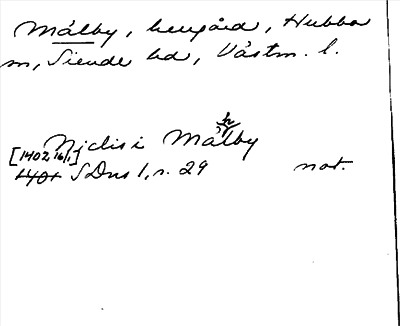 Målby, herrgård, Hubbo
sn, Siende hd, Västm. l.
h
Niclis i Målby
[1402 16/1]
1401 SDns 1, s. 29 not.